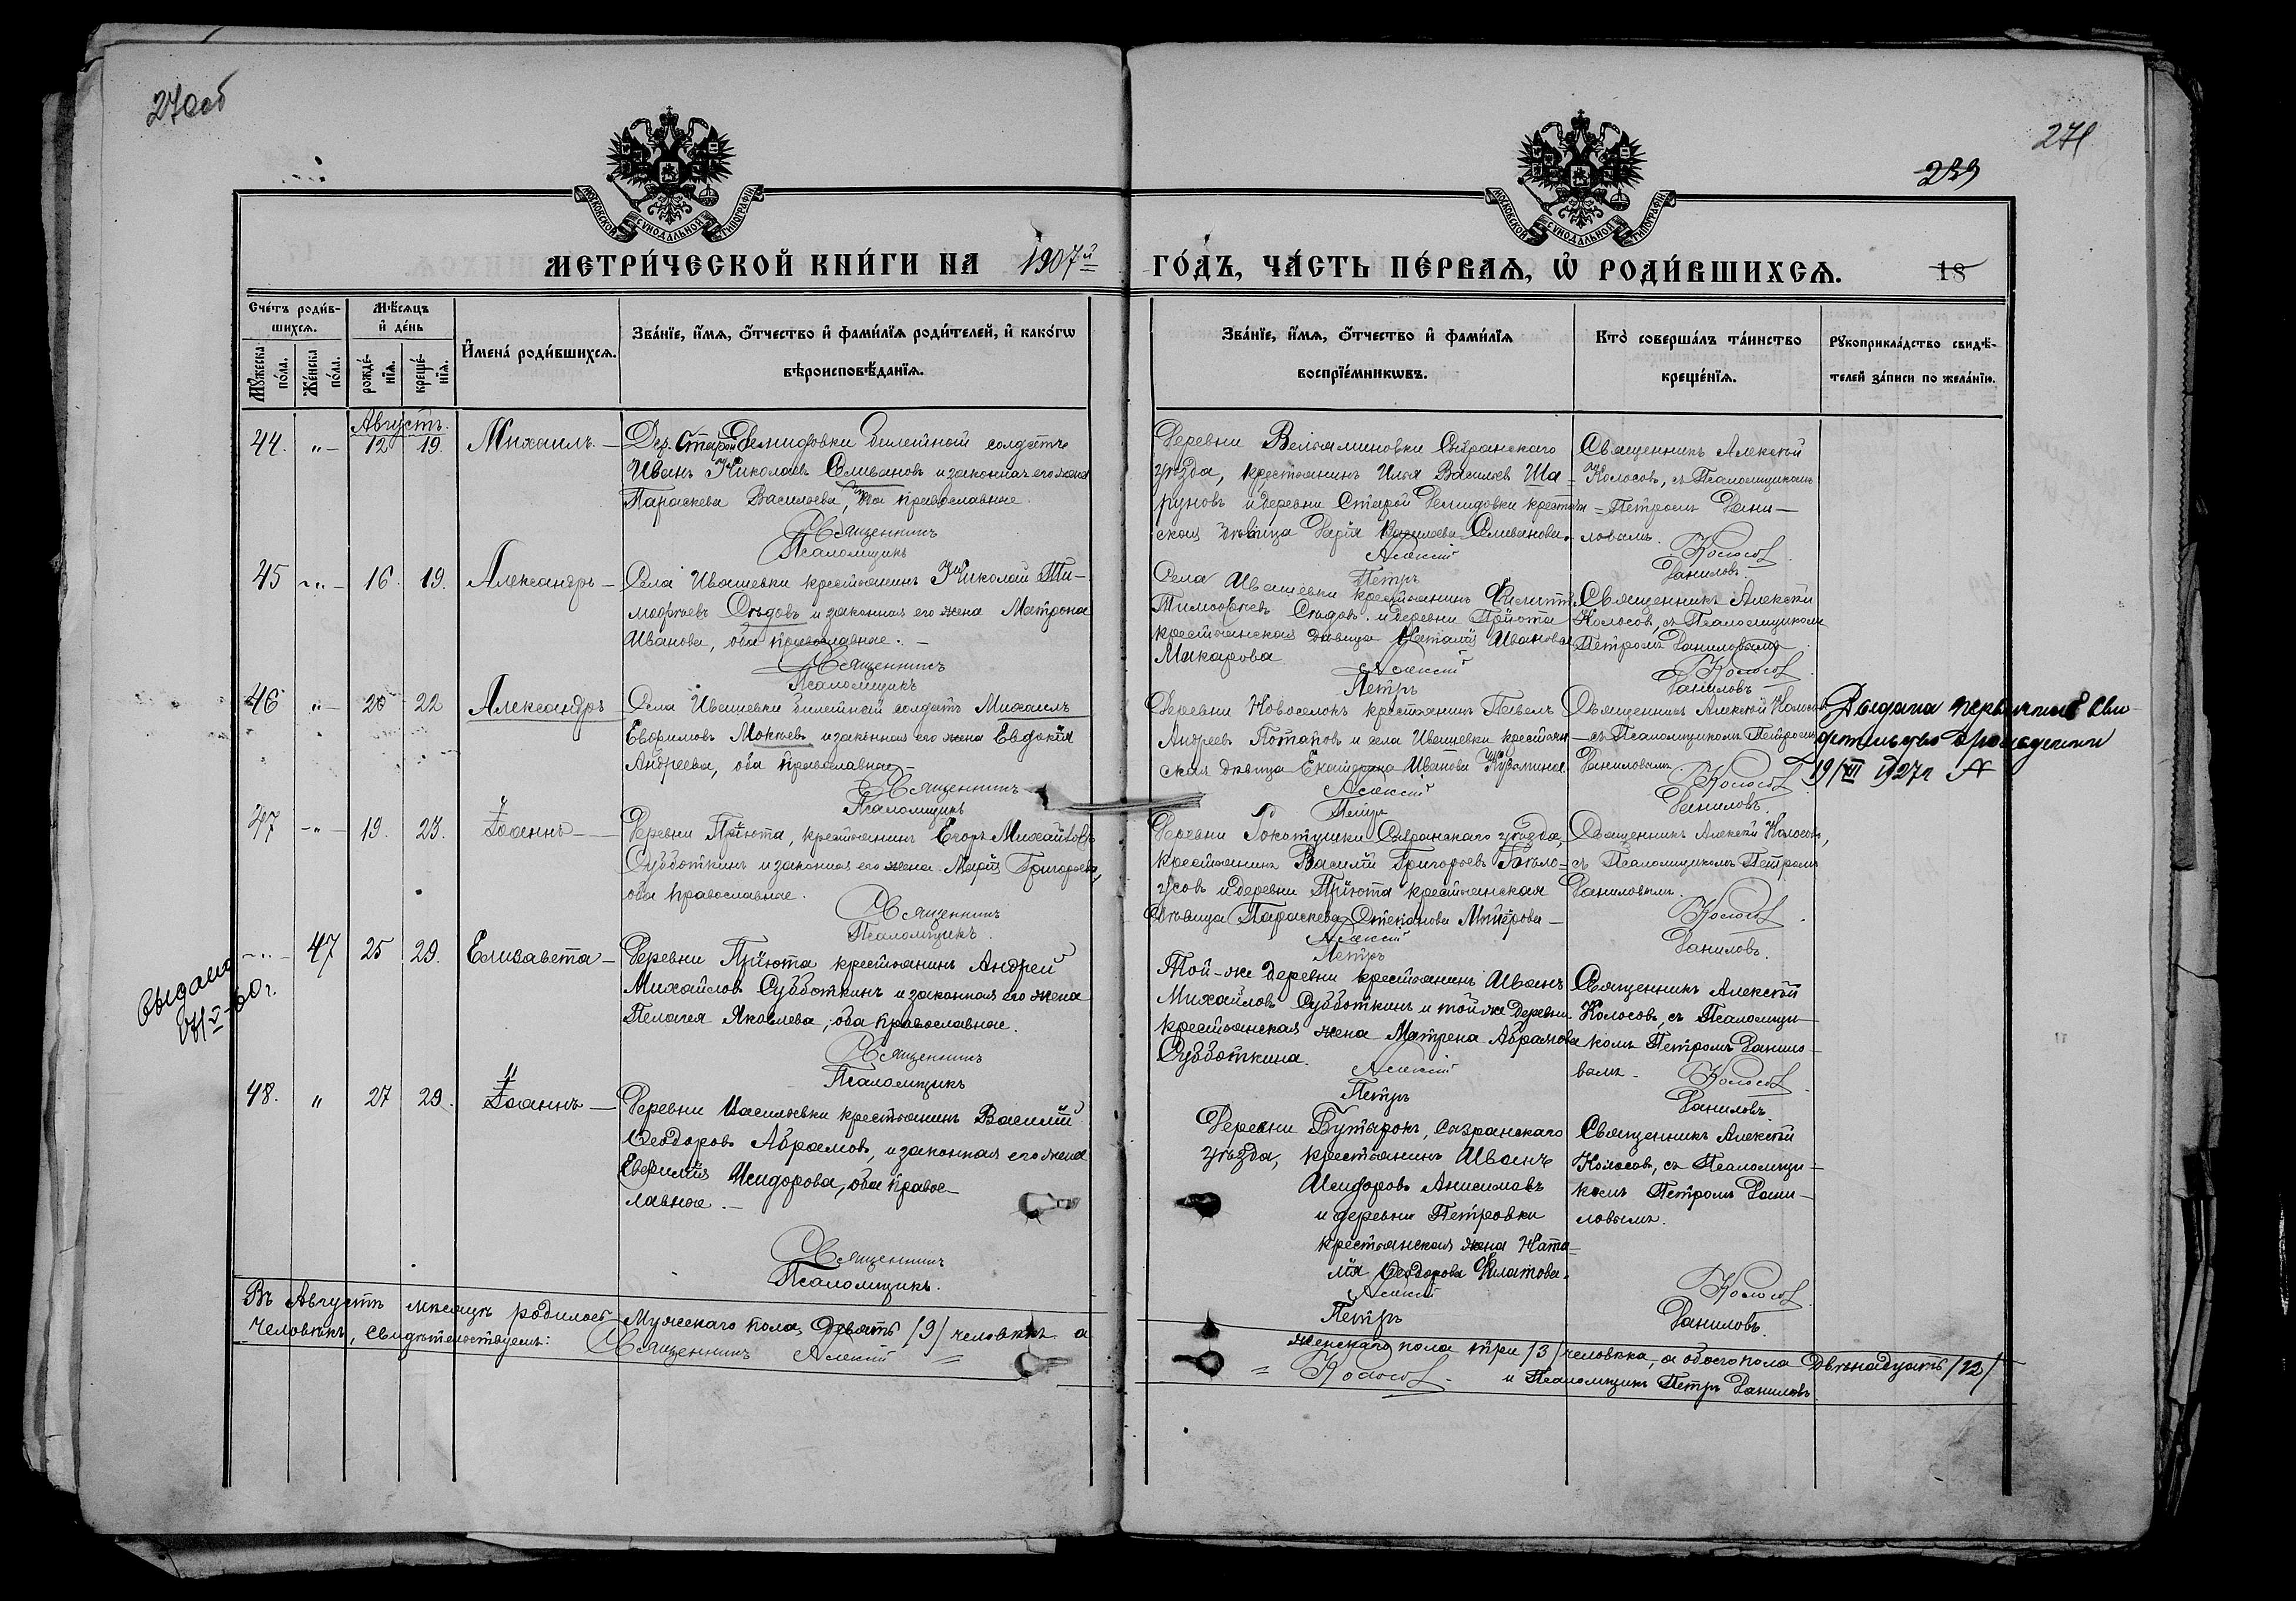 270об
271
МОСКОВСКОЙ СѴНОДАЛЬНОЙ ТИПОГРАФІИ
МОСКОВСКОЙ СѴНОДАЛЬНОЙ ТИПОГРАФІИ
МЕТРИ́ЧЕСКОЙ КНИ́ГИ НА 1907й
ГО́ДЪ, ЧА́СТЬ ПЕ́РВАѦ, Ѡ҆ РОДИ́ВШИХСѦ.
18
Сче́тъ роди́в-
шихсѧ.
Мѣ́сѧцъ
и҆ де́нь
И҆мена̀ роди́вшихсѧ.
Зва́нїе, и҆́мѧ, ѻ҆́тчество и҆ фами́лїѧ роди́телей, и҆ како́гѡ
вѣроисповѣ́данїѧ.
Мꙋ́жеска по́ла.
Же́нска по́ла.
рожде́нїѧ.
креще́нїѧ.
Зва́нїе, и҆́мѧ, ѻ҆́тчество и҆ фами́лїѧ
воспрїе́мникѡвъ.
Кто̀ соверша́лъ та́инство
креще́нїѧ.
Рꙋкоприкла́дство свидѣ́-
телей за́писи по жела́нїю.
Августъ.
44. „ – 12 19. Михаилъ. –
Дер. Старой Демидовки билетный солдатъ
Иванъ Николаевъ Селивановъ и законная его жена
Параскева Васильева, оба православные.
Священникъ
Псаломщикъ
Деревни Вельяминовки Сызранскаго
уѣзда, крестьянинъ Илья Васильевъ Ша-
руновъ и деревни Старой Демидовки крестьян-
ская дѣвица Дарія Васильева Селиванова.
Алексій
Петръ
Священникъ Алексій
Колосовъ, съ Псаломщикомъ
Петромъ Дани-
ловымъ.
Колосовъ
Даниловъ.
45 „ – 16. 19. Александръ –
Села Ивашевки крестьянинъ Николай Ти-
мофеевъ Сѣдовъ и законная его жена Матрона
Иванова, оба православные. –
Священникъ
Псаломщикъ
Села Ивашевки крестьянинъ Филиппъ
Тимофеевъ Сѣдовъ и деревни Пріюта
крестьянская дѣвица Наталія Иванова
Макарова
Алексій
Петръ
Священникъ Алексій
Колосовъ, съ Псаломщикомъ
Петромъ Даниловымъ
Колосовъ
Даниловъ
46 „ – 20 22 Александръ
Села Ивашевки билетный солдатъ Михаилъ
Евфимовъ Мокѣевъ и законная его жена Евдокія
Андреева, оба православные –
Священникъ
Псаломщикъ
Деревни Новоселокъ крестьянинъ Павелъ
Андреевъ Потаповъ и села Ивашевки крестьян-
ская дѣвица Екатерина Иванова Кузьмина
Алексій
Петръ
Священникъ Алексій Колосовъ
съ Псаломщикомъ Петромъ
Даниловымъ
Колосовъ
Даниловъ.
Выдана первичное сви-
дѣтельство о рождении
19/VII 1927г
47 – „ – 19. 23. Іоаннъ –
Деревни Пріюта, крестьянинъ Егоръ Михайловъ
Субботкинъ и законная его жена Марія Григорьева,
оба православные.
Священникъ
Псаломщикъ.
Деревни Рокотушки Сызранскаго уѣзда,
крестьянинъ Василій Григорьевъ Бѣло-
усовъ и деревни Пріюта крестьянская
дѣвица Параскева Степанова
Алексій
Петръ
Священникъ Алексій Колосовъ,
съ Псаломщикомъ Петромъ
Даниловымъ.
Колосовъ.
Даниловъ.
Выдано
47 25 29. Елизавета –
Деревни Пріюта крестьянинъ Андрей
Михайловъ Субботкинъ и законная его жена
Пелагея Яковлева, оба православные.
Священникъ
Псаломщикъ
Той-же деревни крестьянинъ Иванъ
Михайловъ Субботкинъ и той же деревни
крестьянская жена Матрена Абрамова
Субботкина.
Алексій
Петръ
Священникъ Алексій
Колосовъ, съ Псаломщи-
комъ Петромъ Данило-
вымъ –
Колосовъ
Даниловъ
48. „ 27 29. Іоаннъ –
Деревни Васильевки крестьянинъ Василій
Ѳеодоровъ Абрамовъ, и законная его жена
Евфимія Исидорова, оба право-
славные. –
Священникъ
Псаломщикъ.
Деревни Бутырокъ, Сызранскаго
уѣзда, крестьянинъ Иванъ
Исидоровъ Анисимовъ
и деревни Петровки
крестьянская жена Ната-
лія Ѳеодорова Филатова.
Алексій
Петръ
Священникъ Алексій
Колосовъ, съ Псаломщи-
комъ Петромъ Дани-
ловымъ.
Колосовъ.
Даниловъ.
Въ Августѣ мѣсяцѣ родилось Мужескаго пола Девять /9/ человѣкъ а
женскаго пола три /3/ человѣка, а обоего пола Двѣнадцать /12/
человѣкъ, свидѣтельствуемъ: Священникъ Алексій
Колосовъ. и Псаломщикъ Петръ Даниловъ.